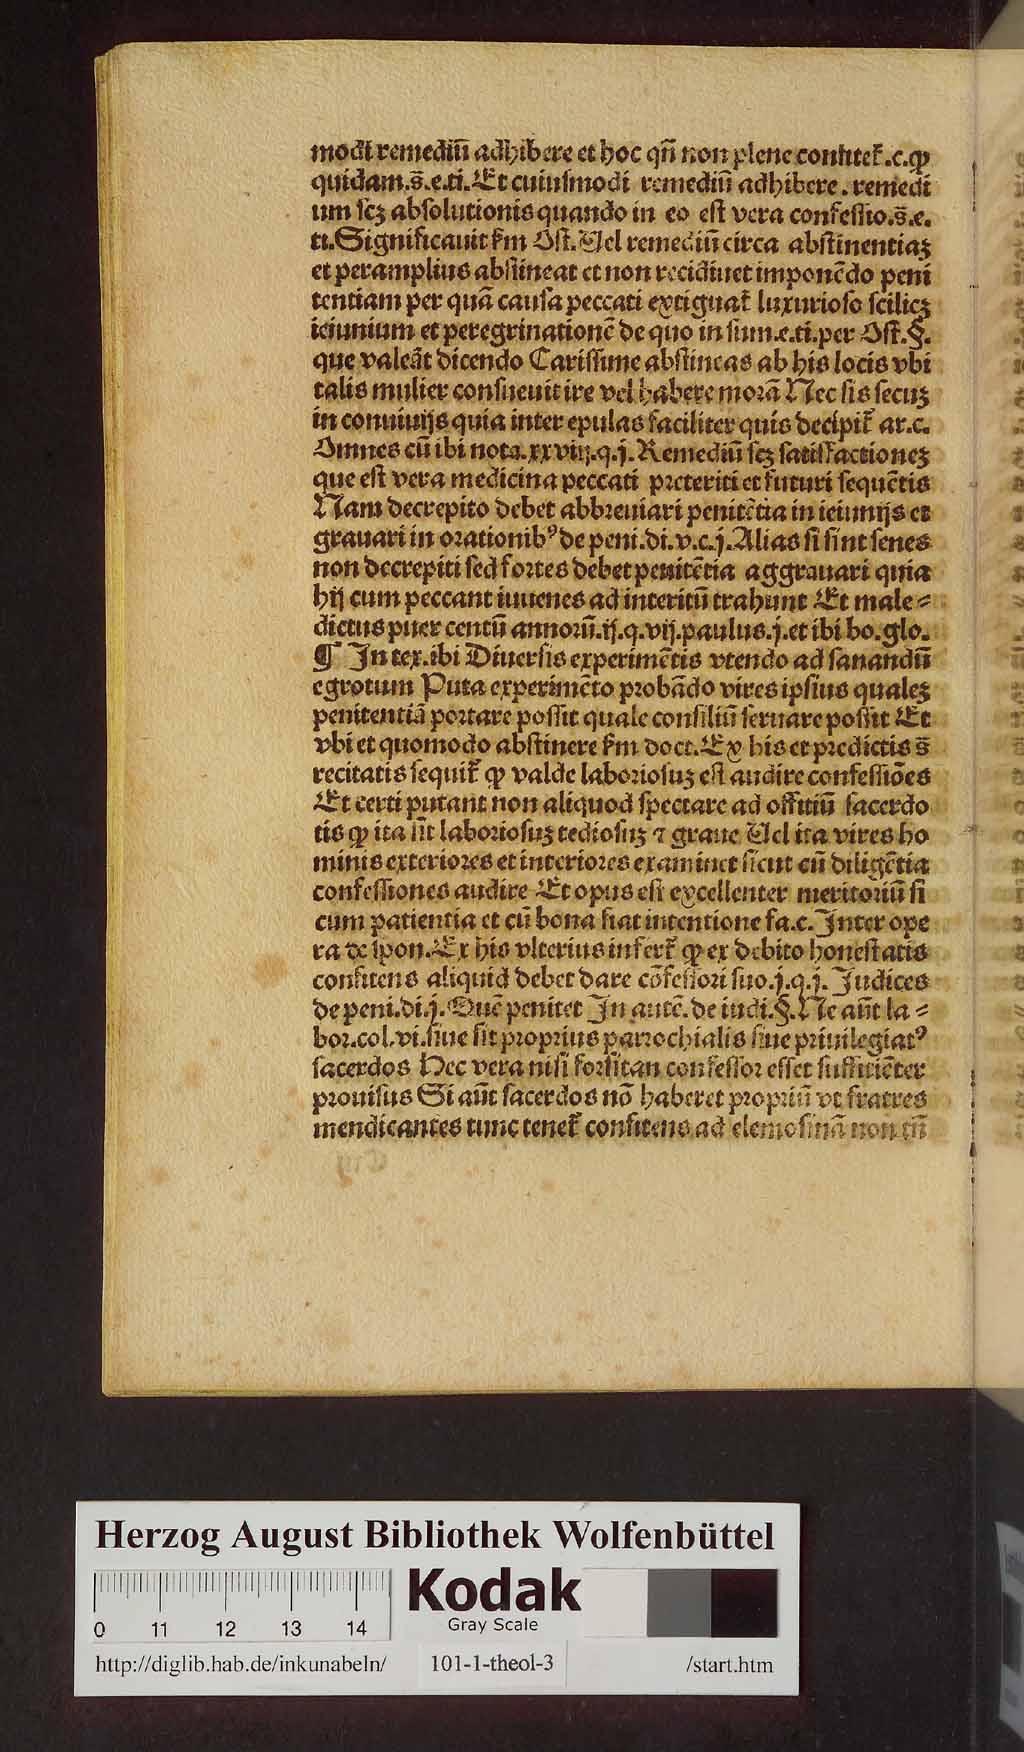 modi remediū adhibere et hoc qñ non plene confitet᷑.c.ꝙ
quidam.s̄.e.ti.Et cuiusmodi remediū adhibere. remedi
um scꝫ absolutionis quando in eo est vera confessio.s̄.e.
ti.Significauit ẜm Ost.Uel remediū circa abstinentiaꝫ
et peramplius abstineat et non recidiuet imponēdo peni
tentiam per quā causa peccati extiguat᷑ luxurioso scilicꝫ
ieiunium et peregrinationē de quo in sum.e.ti.per Ost.§.
que valeāt dicendo Carissime abstineas ab his locis vbi
talis mulier consueuit ire vel habere morā Nec sis secuꝫ
in conuiuijs quia inter epulas faciliter quis decipit᷑ ar.c.
Omnes cū ibi nota.xxviij.q.j.Remediū scꝫ satisfactioneꝫ
que est vera medicina peccati preteriti et futuri sequētis
Nam decrepito debet abbreuiari penitētia in ieiunijs et
grauari in orationibꝰ de peni.di.v.c.j.Alias si sint senes
non decrepiti sed fortes debet penitētia aggrauari quia
hij cum peccant iuuenes ad interitū trahunt Et male⸗
dictus puer centū annorū.ij.q.vij.paulus.j.et ibi bo.glo.
¶ In tex.ibi Diuersis experimētis vtendo ad sanandū
egrotum Puta experimēto probādo vires ipsius qualeꝫ
penitentiā portare possit quale consiliū seruare possit Et
vbi et quomodo abstinere ẜm doct.Ex his et predictis s̄
recitatis sequit᷑ ꝙ valde laboriosuꝫ est audire confessiōes
Et certi putant non aliquod spectare ad offitiū sacerdo
tis ꝙ ita sit laboriosuꝫ tediosuꝫ ⁊ graue Uel ita vires ho
minis exteriores et interiores examinet sicut cū diligētia
confessiones audire Et opus est excellenter meritoriū si
cum patientia et cū bona fiat intentione fa.c.Inter ope
ra de spon.Ex his vlterius infert᷑ ꝙ ex debito honestatis
confitens aliquid debet dare cōfessori suo.j.q.j.Iudices
de peni.di.j.Quē penitet In autē.de iudi.§.Ne aūt la⸗
bor.col.vi.siue sit proprius parrochialis siue priuilegiatꝰ
sacerdos Nec vera nisi forsitan confessor esset sufficiēter
prouisus Si aūt sacerdos nō haberet propriū vt fratres
mendicantes tunc tenet᷑ confitens ad elemosinā non tm̄
Herzog August Bibliothek Wolfenbüttel
Kodak
Gray Scale
0 11 12 13 14
http://diglib.hab.de/inkunabeln/ 101-1-theol-3 /start.htm